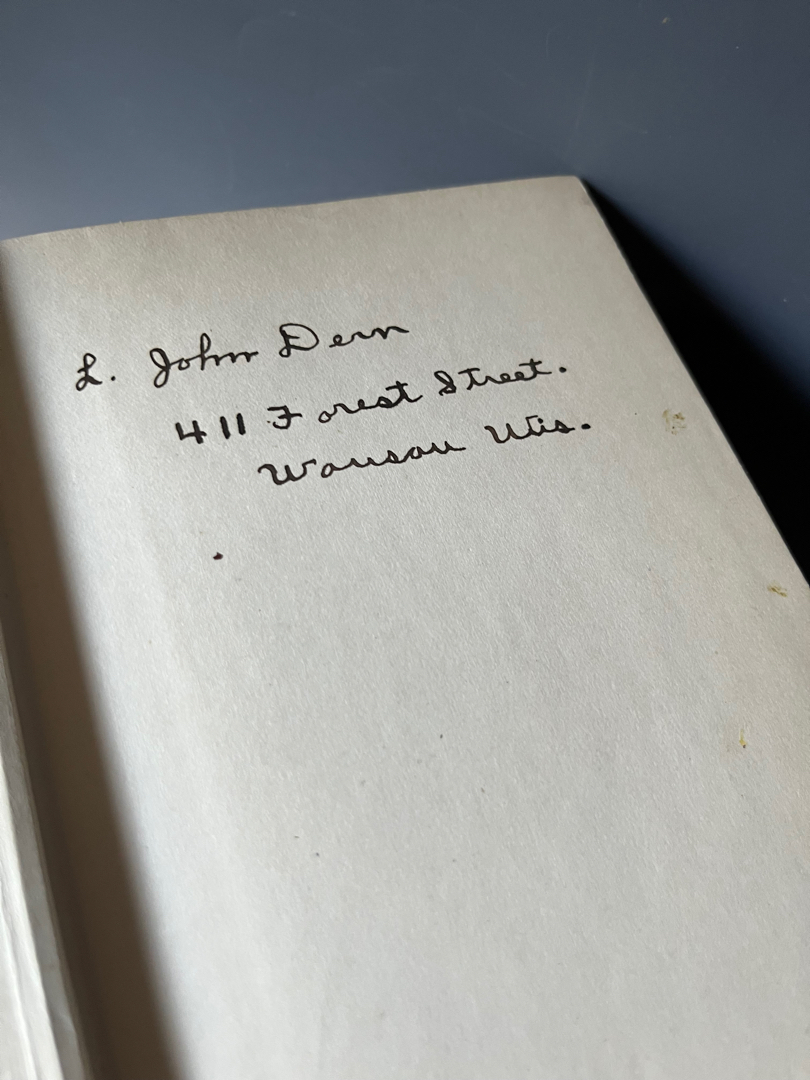 L. John Dern
411 Forest Street.
Wausau Wis.